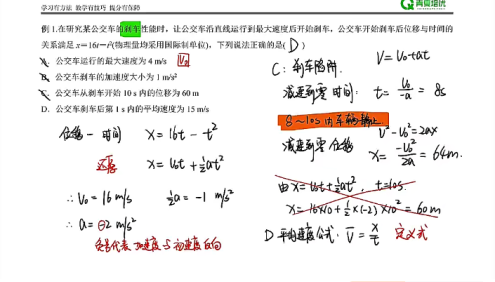 学习有方法 数学有技巧 提分有保障
青夏培优
例1.在研究某公交车的刹车性能时,让公交车沿直线运行到最大速度后开始刹车,公交车开始刹车后位移与时间的
关系满足 x=16t-t²(物理量均采用国际制单位),下列说法正确的是( D )
A. 公交车运行的最大速度为 4 m/s V₀
B. 公交车刹车的加速度大小为 1 m/s²
C. 公交车从刹车开始 10 s 内的位移为 60 m
D. 公交车刹车后第 1 s 内的平均速度为 15 m/s
位移一 时间 x=16t-t²
还原 x=V₀t+½at²
∴V₀=16 m/s ½a=-1 m/s²
∴a=-2 m/s²
负号代表加速度与初速度反向
V=V₀+at
C:刹车陷阱.
减速到零时间: t=V₀/-a=8s
8~10s内车静止.
V²-V₀²=2ax
减速到零位移 x=-V₀²/2a=64m.
由x=V₀t+½at², t=10s
x=16×10+½×(-2)×10²=60m
D 平均速度公式: V̄=x/t 定义式